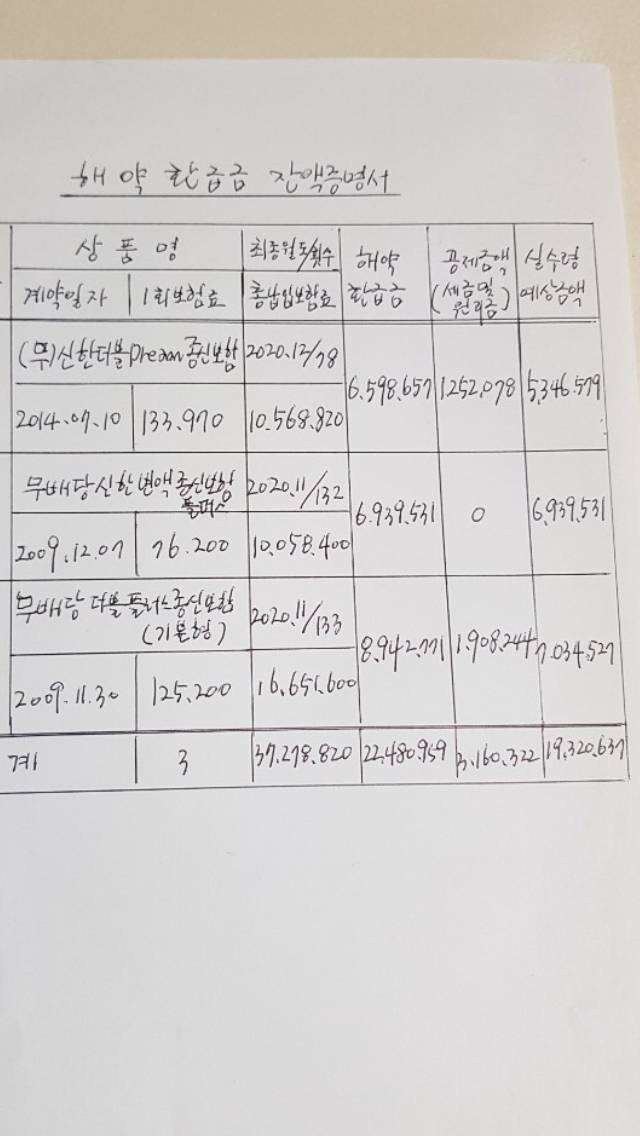 해약 환급금 잔액증명서
상품명 최종월도/횟수 해약환급금 공제금액(세금및원리금) 실수령예상금액
계약일자 1회보험료 총납입보험료
(무)신한더블Dream종신보험 2020.12/78 6.598.657 1.252.078 5.346.579
2014.07.10 133.970 10.568.820
무배당신한변액종신보험플러스 2020.11/132 6.939.531 0 6.939.531
2009.12.07 76.200 10.058.400
무배당 더블플러스종신보험(기본형) 2020.11/133 8.942.771 1.908.244 7.034.527
2009.11.30 125.200 16.651.600
계 3 37.278.820 22.480.959 3.160.322 19.320.637